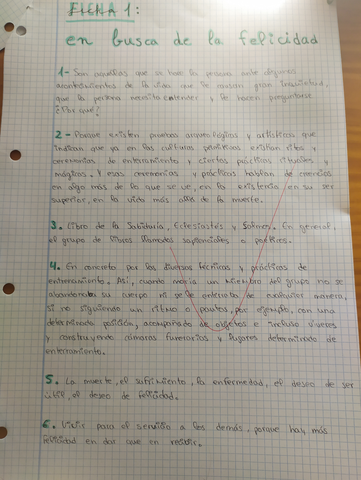 FICHA 1:
en busca de la felicidad
1- Son aquellas que se hace la persona ante algunos
acontecimientos de la vida que le causan gran inquietud,
que la persona necesita entender y le hacen preguntarse
¿Por qué?
2- Porque existen pruebas arqueológicas y artísticas que
indican que ya en las culturas primitivas existían ritos y
ceremonias de enterramiento y ciertas prácticas rituales y
mágicas. Y esas ceremonias y prácticas hablan de creencias
en algo más de lo que se ve, en la existencia en su ser
superior, en la vida más allá de la muerte.
3. Libro de la Sabiduría, Eclesiastés y Salmos. En general,
el grupo de libros llamados sapienciales o poéticos.
4. En concreto por las diversas técnicas y prácticas de
enterramiento. Así, cuando moría un miembro del grupo no se
abandonaba su cuerpo ni se le enterraba de cualquier manera,
si no siguiendo un ritmo o pautas, por ejemplo, con una
determinada posición, acompañado de objetos e incluso víveres
y construyendo cámaras funerarias y lugares determinado de
enterramiento.
5. La muerte, el sufrimiento, la enfermedad, el deseo de ser
útil, el deseo de felicidad.
6. Vivir para el servicio a los demás, porque hay más
felicidad en dar que en recibir.